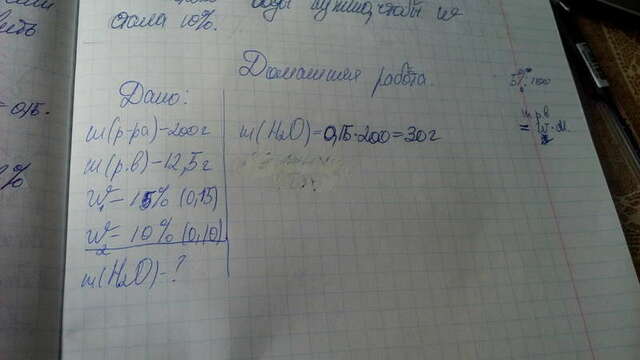 воды нужно, чтобы w
стала 10%.
Домашняя работа.
= 0,15.
Дано:
m(р-ра)-200г
m(р.в)-12,5г
w₁- 15% (0,15)
w₂- 10% (0,10)
m(H₂O)-?
m(H₂O)=0,15·200=30г
5% 100
m р.в
= w·m